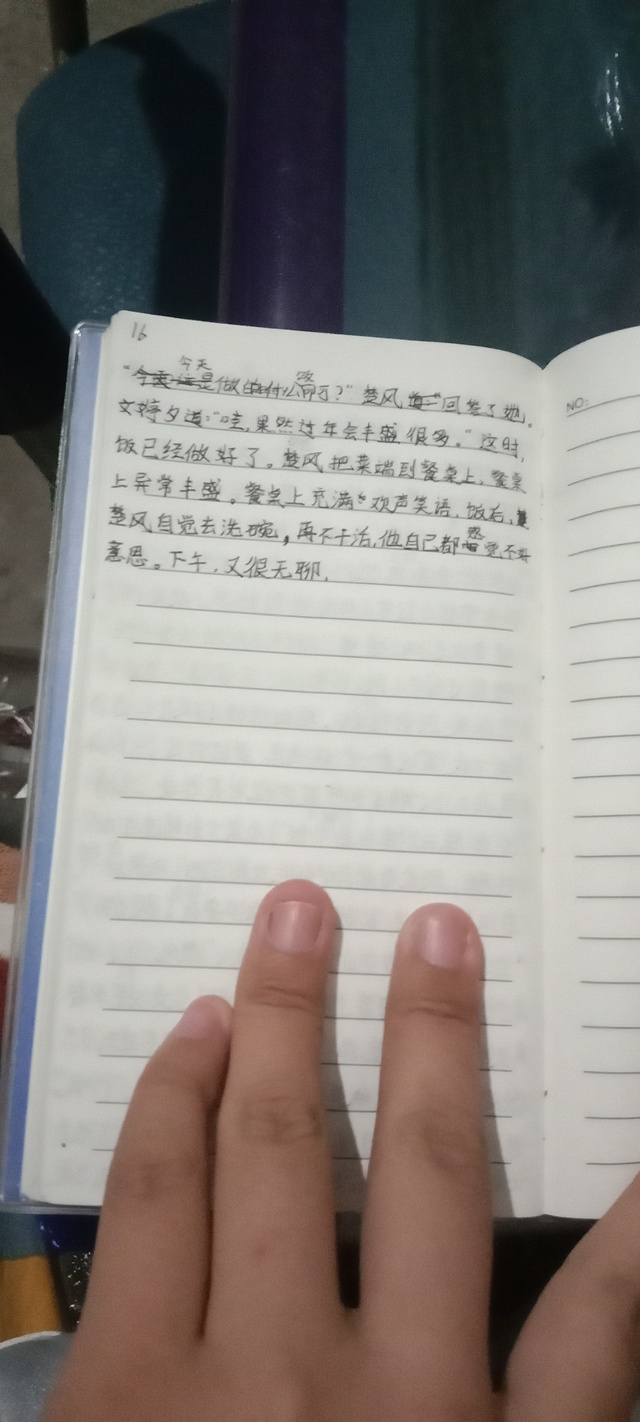 16
今天
"做什么 ?"楚风回答了她。
文婷夕道:"哇,果然过年会丰盛很多。"这时,
饭已经做好了。楚风把菜端到餐桌上,餐桌
上异常丰盛。餐桌上充满欢声笑语,饭后,
楚风自觉去洗碗,再不干活,他自己都感觉不好
意思。下午,又很无聊,
NO: